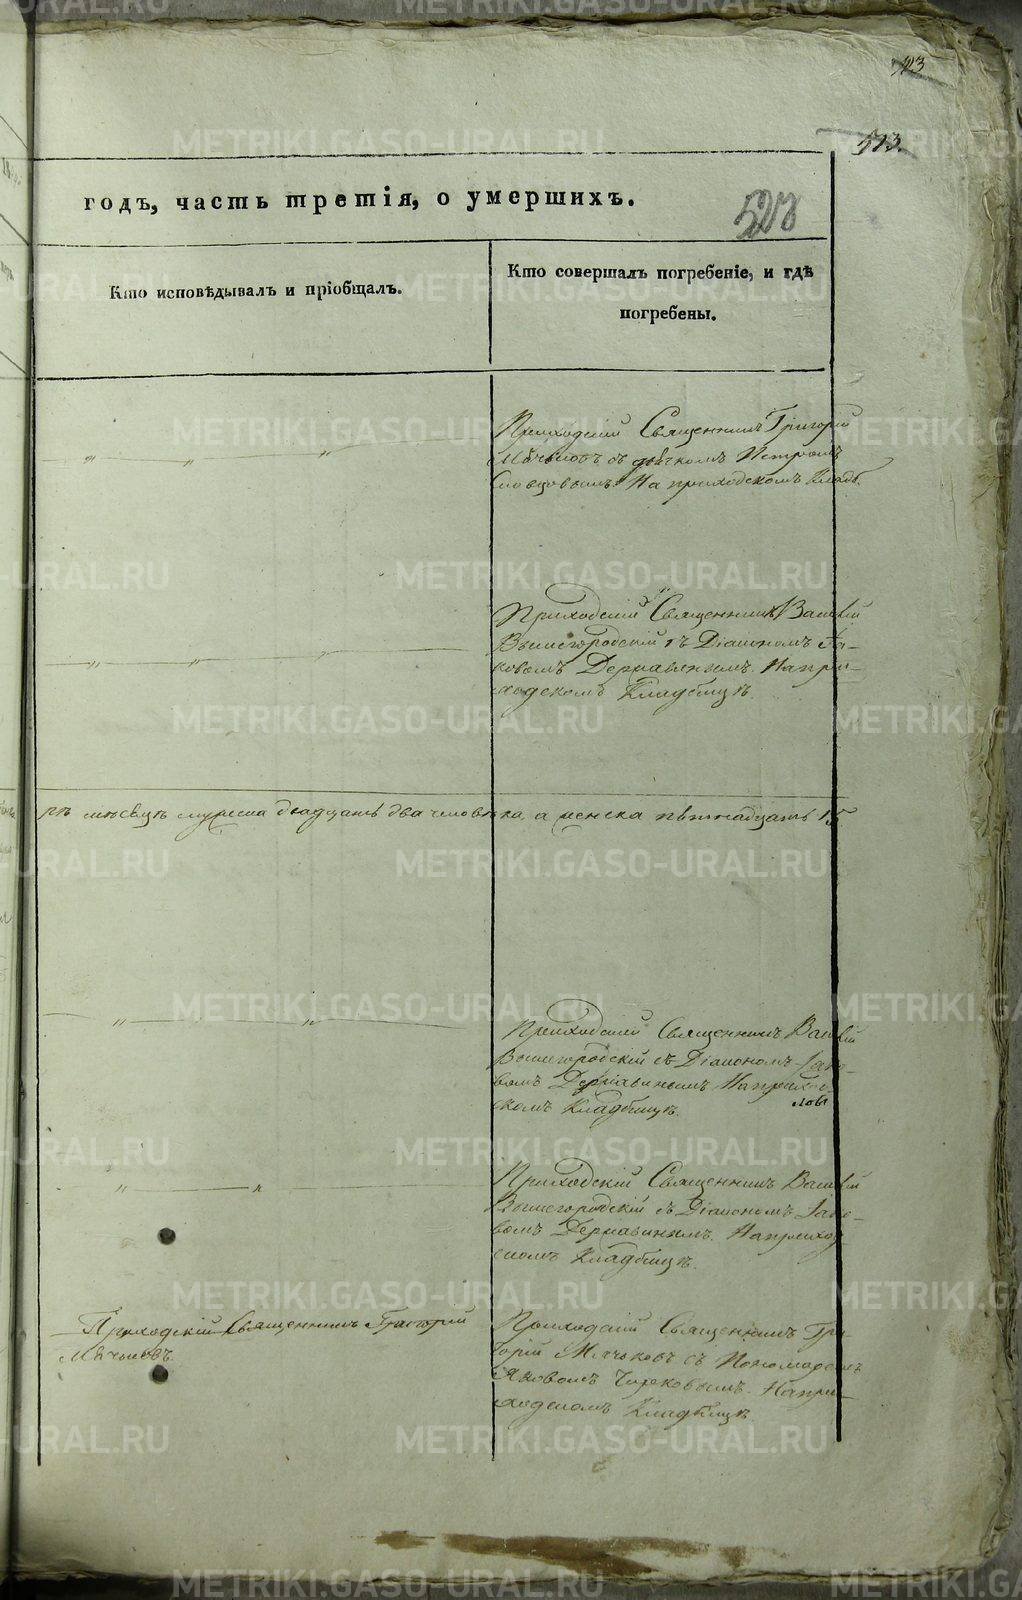 513.
годъ, часть третія, о умершихъ.
Кто исповѣдывалъ и пріобщалъ.
Кто совершалъ погребеніе, и гдѣ
погребены.
Приходскій Священникъ Григорій
Мячьковъ съ дьячкомъ Петромъ
На приходскомъ Кладб.
Приходскій Священникъ Василій
Вышегородскій съ Діакономъ Іа-
ковомъ Державинымъ. На при-
ходскомъ Кладбищѣ.
мѣсяцѣ мужеска двадцать два человѣка, а женска пятнадцать 15
Приходскій Священникъ Василій
Вышегородскій съ Діакономъ Іако-
вомъ Державинымъ. На приход-
скомъ Кладбищѣ.
Приходскій Священникъ Василій
Вышегородскій съ Діакономъ Іако-
вомъ Державинымъ. На приход
скомъ Кладбищѣ.
Приходскій Священникъ Григорій
Мячьковъ.
Приходскій Священникъ Гри-
горій Мячьковъ съ Пономаремъ
Яковомъ На при-
ходскомъ Кладбищѣ.
METRIKI.GASO-URAL.RU